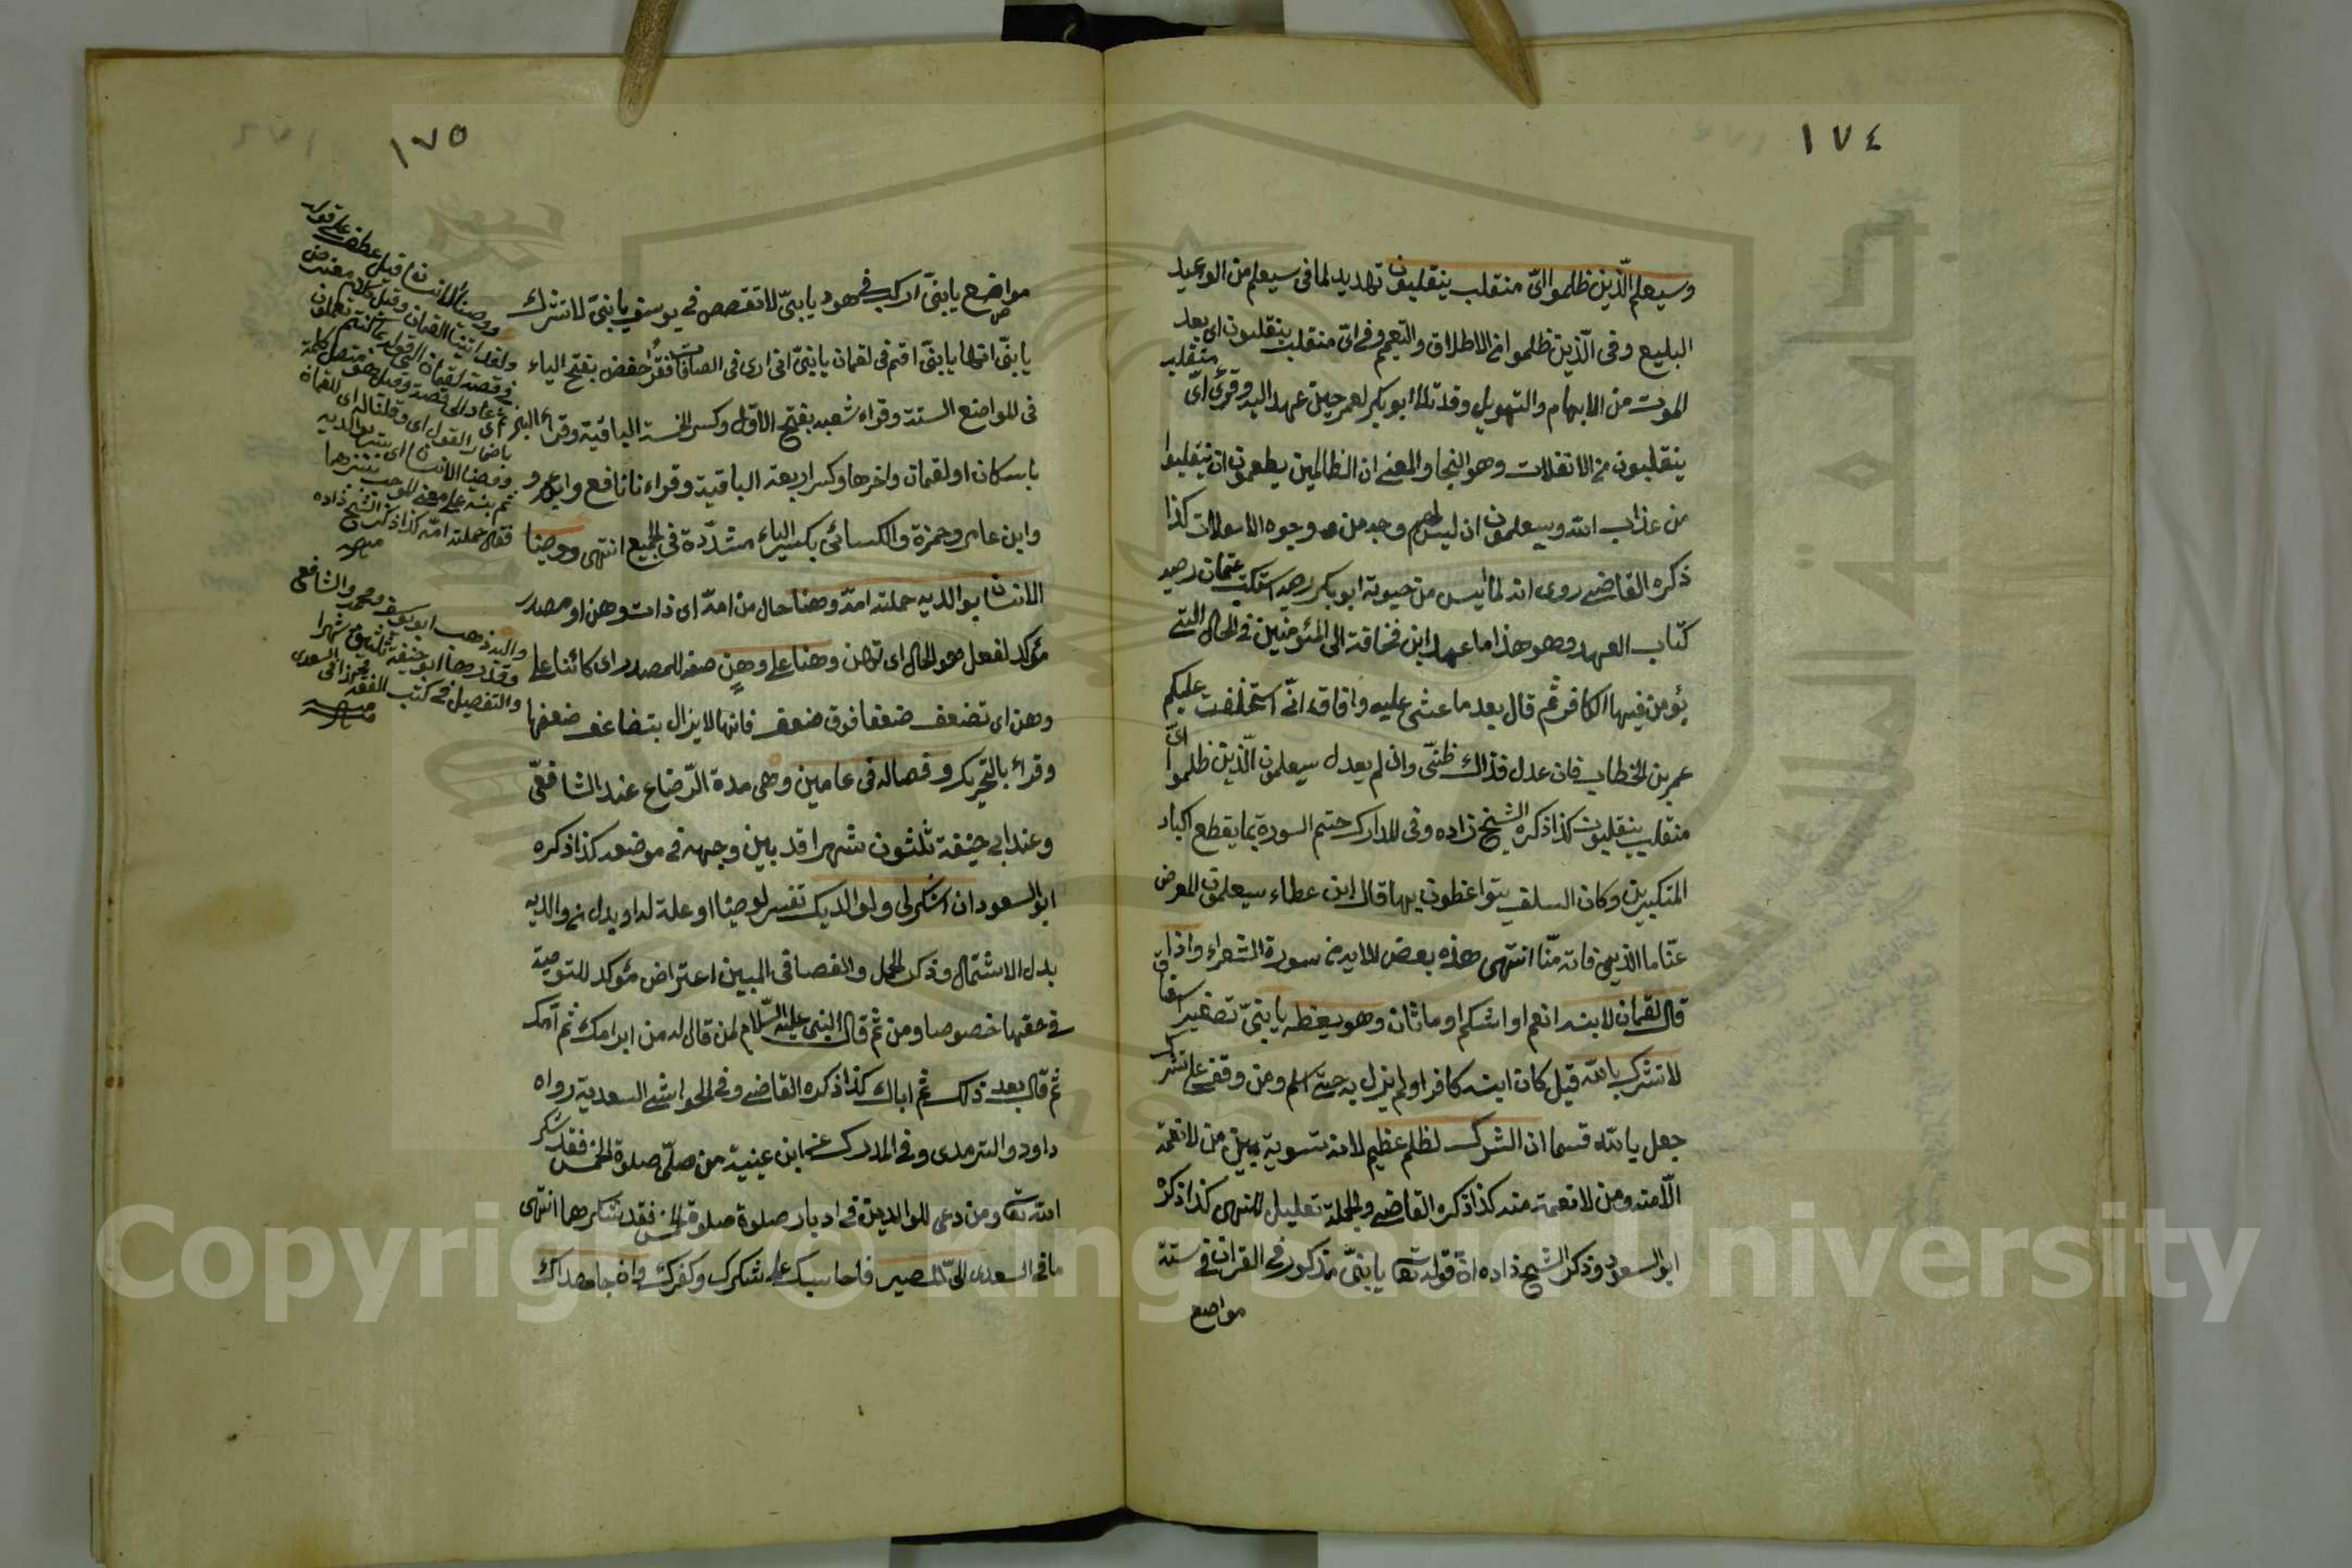 ١٧٤
وسيعلم الّذين ظلموا ايّ منقلب ينقلبون تهديد لما في سيعلم من الوعيد
البليغ وفي الّذين ظلموا من الاطلاق والتعميم وفي ايّ منقلب ينقلبون اي بعد
الموت من الابهام والتهويل وقد تلاها ابو بكر لعمر حين عهد اليه وقرئ ايّ منفلت
ينفلتون من الانفلات وهو النجاة والمعنى ان الظالمين يطمعون ان ينفلتوا
من عذاب الله وسيعلمون ان ليس لهم وجه من وجوه الانفلات كذا
ذكره القاضي روى انه لما ايس من حيوته ابو بكر رضه استكتب عثمان رضه
كتاب العهد وهو هذا ما عهد ابن قحافة الى المؤمنين في الحال التي
يؤمن فيها الكافر ثم قال بعد ما غشي عليه وافاق انّي استخلفت عليكم
عمر بن الخطاب فان عدل فذاك ظنّي وان لم يعدل سيعلمون الّذين ظلموا ايّ
منقلب ينقلبون كذا ذكره الشيخ زاده وفي المدارك ختم السورة بما يقطع اكباد
المتكبرين وكان السلف يتواعظون بها قال ابن عطاء سيعلمون المعرض
عنّا ما الذي فاته منّا انتهى هذه بعض الآية من سورة الشعراء واذ
قال لقمان لابنه انعم او اشكم او ماثان وهو يعظه يا بنيّ تصغير اشفاق
لا تشرك بالله قيل كان ابنه كافرا ولم يزل به حتى اسلم ومن وقف على تشرك
جعل بالله قسما ان الشرك لظلم عظيم لانه تسوية بين من لا نعمة
الّا منه ومن لا نعمة منه كذا ذكره القاضي والجملة تعليل للنهي كذا ذكره
ابو السعود وذكر الشيخ زاده ان قوله تعا يا بنيّ مذكور في القران في ستة
مواضع
١٧٥
مواضع يا بنيّ اركب في هود يا بنيّ لا تقصص في يوسف يا بنيّ لا تشرك
يا بنيّ انها يا بنيّ اقم في لقمان يا بنيّ اني ارى في الصافات فقرأ حفص بفتح الياء
في المواضع الستة وقراء شعبه بفتح الاوّل وكسر الخمسة الباقية وقراء البزي
باسكان اول لقمان واخرها وكسر اربعة الباقية وقراءنا نافع وابو عمرو
وابن عامر وحمزة والكسائي بكسر الياء مشدّدة في الجميع انتهى ووصّينا
الانسان بوالديه حملته امّه وهنا حال من امّه اي ذات وهن او مصدر
مؤكد لفعل هو الحال اي تهن وهنا على وهن صفة للمصدر اي كائنا على
وهن اي تضعف ضعفا فوق ضعف فانها لا يزال يتضاعف ضعفها
وقرئ بالتحريك وفصاله في عامين وهي مدة الرّضاع عند الشافعيّ
وعند ابي حنيفة ثلثون شهرا قد بيّن وجهه في موضعه كذا ذكره
ابو السعود ان اشكر لي ولوالديك تفسير لوصّينا او علة له او بدل من والديه
بدل الاشتمال وذكر الحمل والفصال في البين اعتراض مؤكد للتوصية
في حقها خصوصا ومن ثم قال النبي عليه السّلام لمن قال له من ابرّ امك ثم امك
ثم قال بعد ذلك ثم اباك كذا ذكره القاضي وفي الحواشي السعدية رواه
داود والترمدي وفي المدرك عن ابن عيينة من صلّى صلوة الخمس فقد شكر
الله تعا ومن دعى للوالدين في ادبار صلوة صلوة الخمس فقد شكرهما انتهى
ما في السعدى الىّ المصير فاحاسبك على شكرك وكفرك وان جاهداك
ووصينا الانسان قيل عطف على قوله
ولقد اتينا لقمان وقيل كلام معترض
باضمار القول اي وقلنا له اي للقمان
ووصينا الانسان اي بوالديه
فقال حملته امّه كذا ذكره الشيخ زاده
منه
واليه ذهب ابو يوسف ومحمد والشافعي
وقدرها ابو حنيفة بثلثين شهرا
والتفصيل في كتب الفقه السعدى
منه